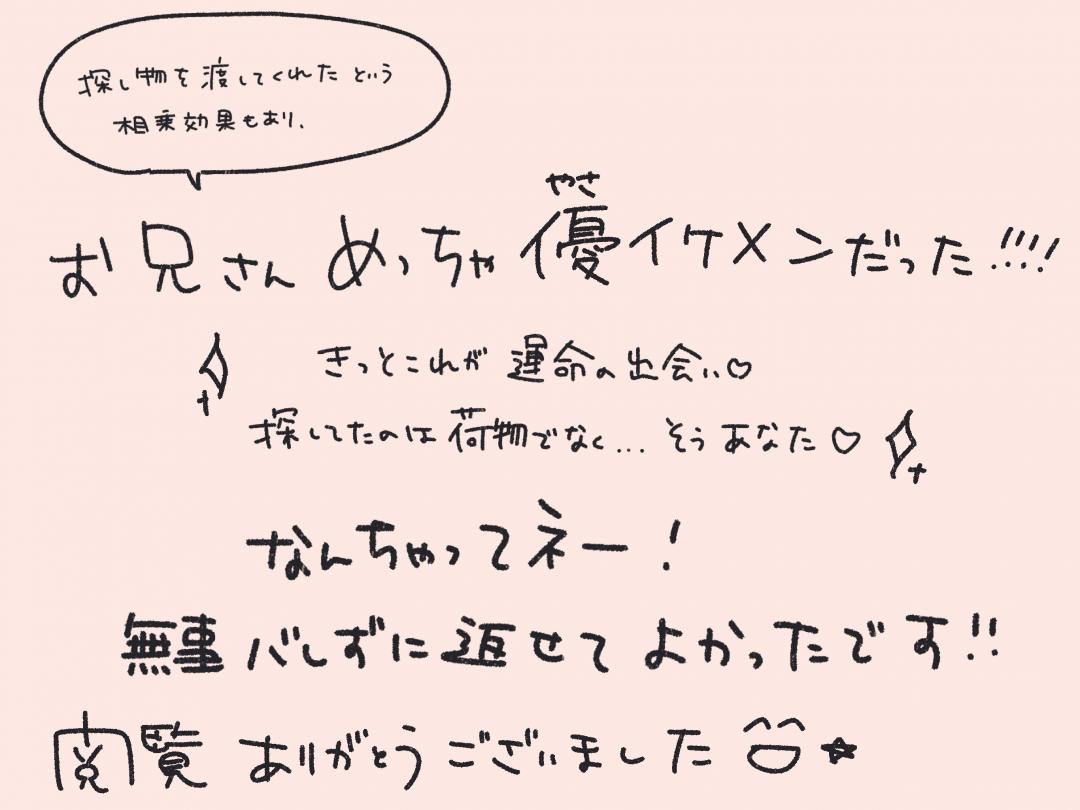 探し物を渡してくれた という
相乗効果もあり、
やさ
お兄さん めっちゃ 優イケメンだった!!!!
きっとこれが 運命の出会い♡
探してたのは荷物でなく... そう あなた♡
なんちゃってネー!
無事 バレずに返せて よかったです!!
閲覧 ありがとうございました